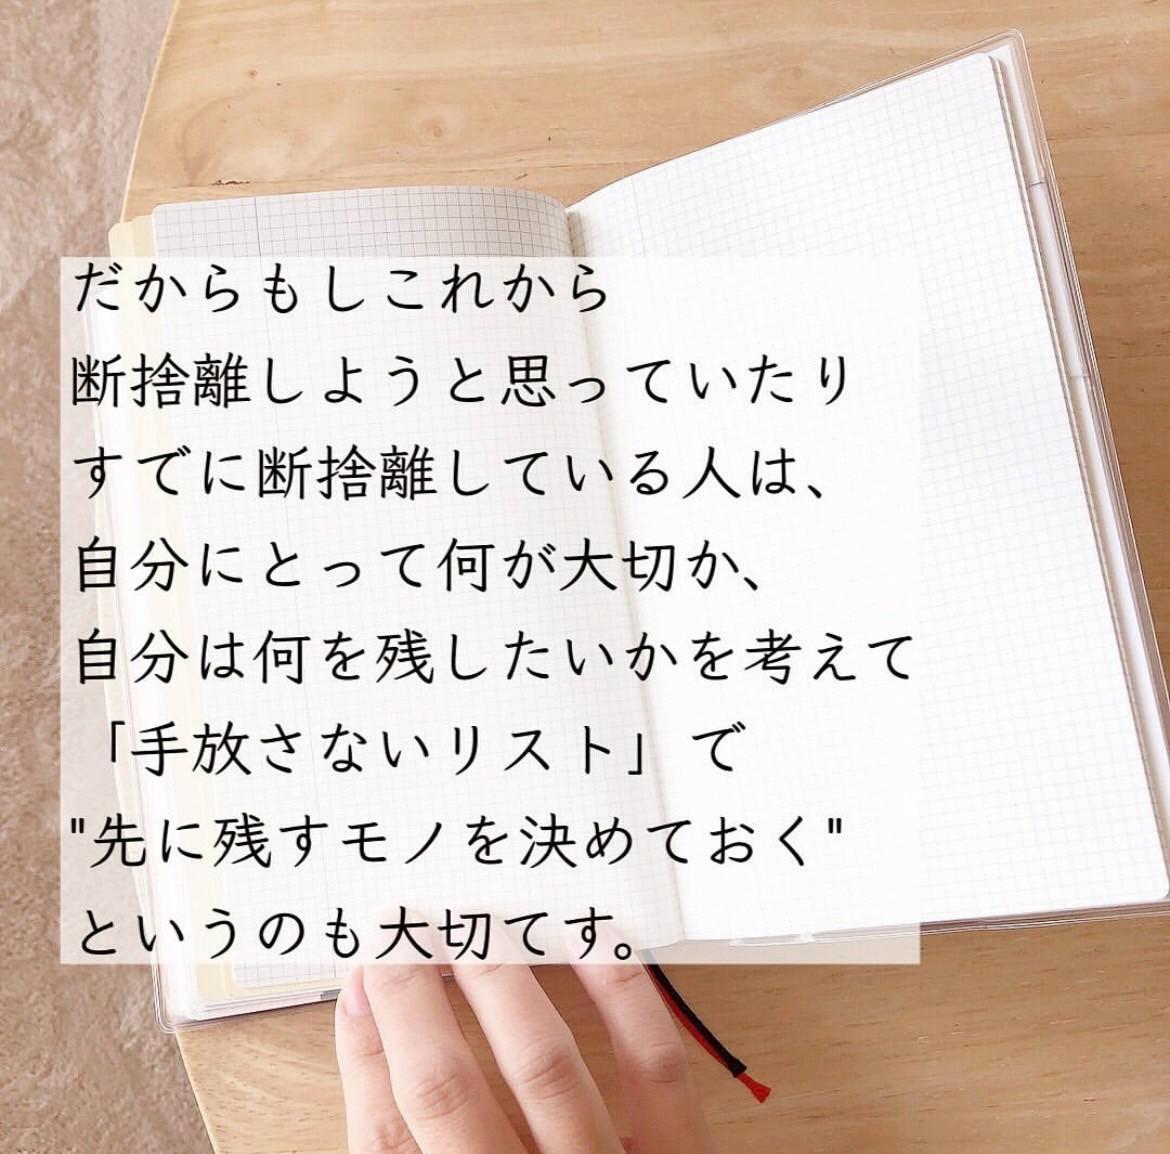 だからもしこれから
断捨離しようと思っていたり
すでに断捨離している人は、
自分にとって何が大切か、
自分は何を残したいかを考えて
「手放さないリスト」で
"先に残すモノを決めておく"
というのも大切てす。